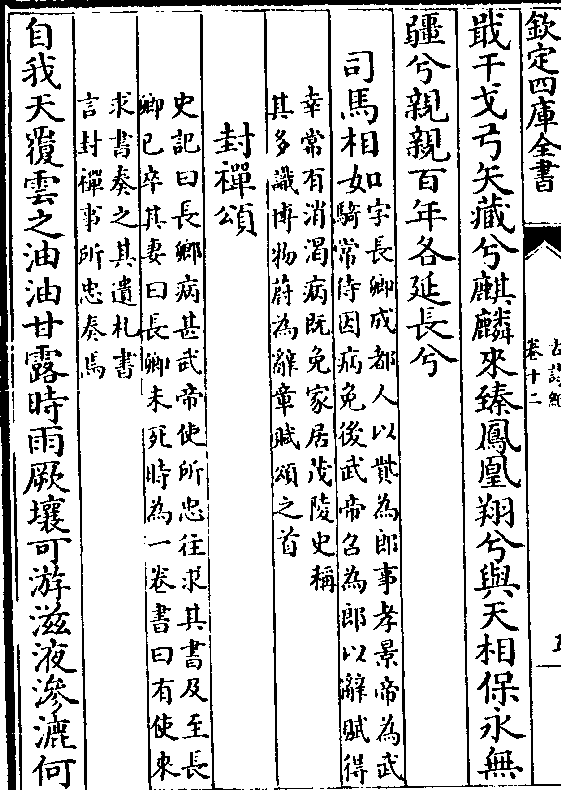 欽定四庫全書
卷十二
戢干戈弓矢藏兮麒麟來臻鳳凰翔兮與天相保永無
疆兮親親百年各延長兮
司馬相如
字長卿成都人以貲為郎事孝景帝為武
騎常侍因病免後武帝召為郎以辭賦得
幸常有消渴病既免家居茂陵史稱
其多識博物蔚為辭章賦頌之首
封禪頌
史記曰長卿病甚武帝使所忠往求其書及至長
卿已卒其妻曰長卿未死時為一卷書曰有使來
求書奏之其遺札書
言封禪事所忠奏焉
自我天覆雲之油油甘露時雨厥壤可游滋液滲漉何